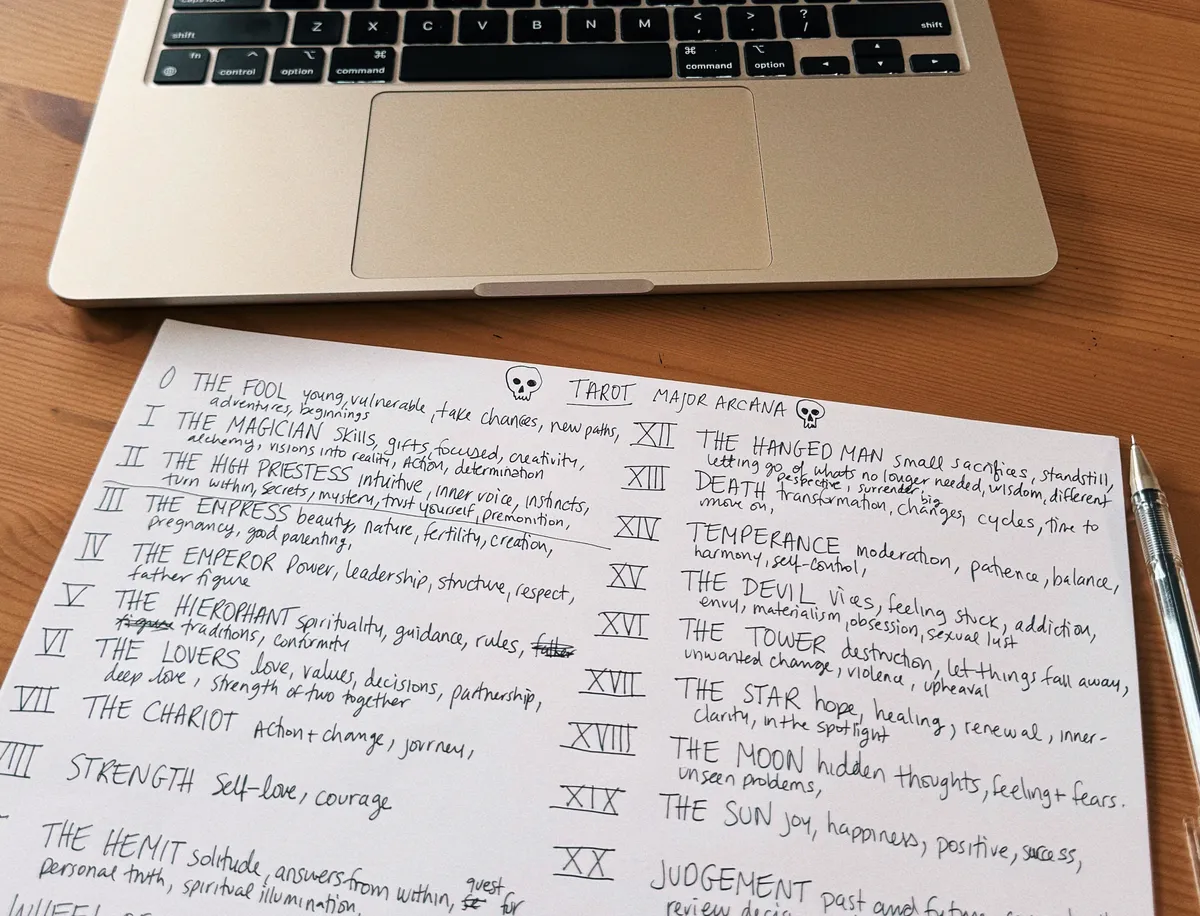 caps lock
shift Z X C V B N M < , > . ? / shift
fn control option command command option
TAROT MAJOR ARCANA
0 THE FOOL young, vulnerable, take chances, new paths,
adventures, beginnings
I THE MAGICIAN Skills, gifts, focused, creativity,
alchemy, visions into reality, Action, determination
II THE HIGH PRIESTESS intuitive, inner voice, instincts,
turn within, secrets, mystery, trust yourself, premonition,
III THE EMPRESS beauty, nature, fertility, creation,
pregnancy, good parenting,
IV THE EMPEROR Power, leadership, structure, respect,
father figure
V THE HIEROPHANT spirituality, guidance, rules, father
figure traditions, conformity
VI THE LOVERS love, values, decisions, partnership,
deep love, strength of two together
VII THE CHARIOT Action + change, journey,
VIII STRENGTH Self-love, courage
THE HEMIT solitude, answers from within, quest for
personal truth, spiritual illumination,
WHEEL
XII THE HANGED MAN small sacrifices, standstill,
letting go of whats no longer needed, wisdom, different
pespective, surrender
XIII DEATH transformation, big changes, cycles, time to
move on,
XIV TEMPERANCE moderation, patience, balance,
harmony, self-control,
XV THE DEVIL vices, feeling stuck, addiction,
envy, materialism, obsession, sexual lust
XVI THE TOWER destruction, let things fall away,
unwanted change, violence, upheaval
XVII THE STAR hope, healing, renewal, inner-
clarity, in the spotlight
XVIII THE MOON hidden thoughts, feeling + fears.
unseen problems,
XIX THE SUN joy, happiness, positive, success,
XX JUDGEMENT past and future
review